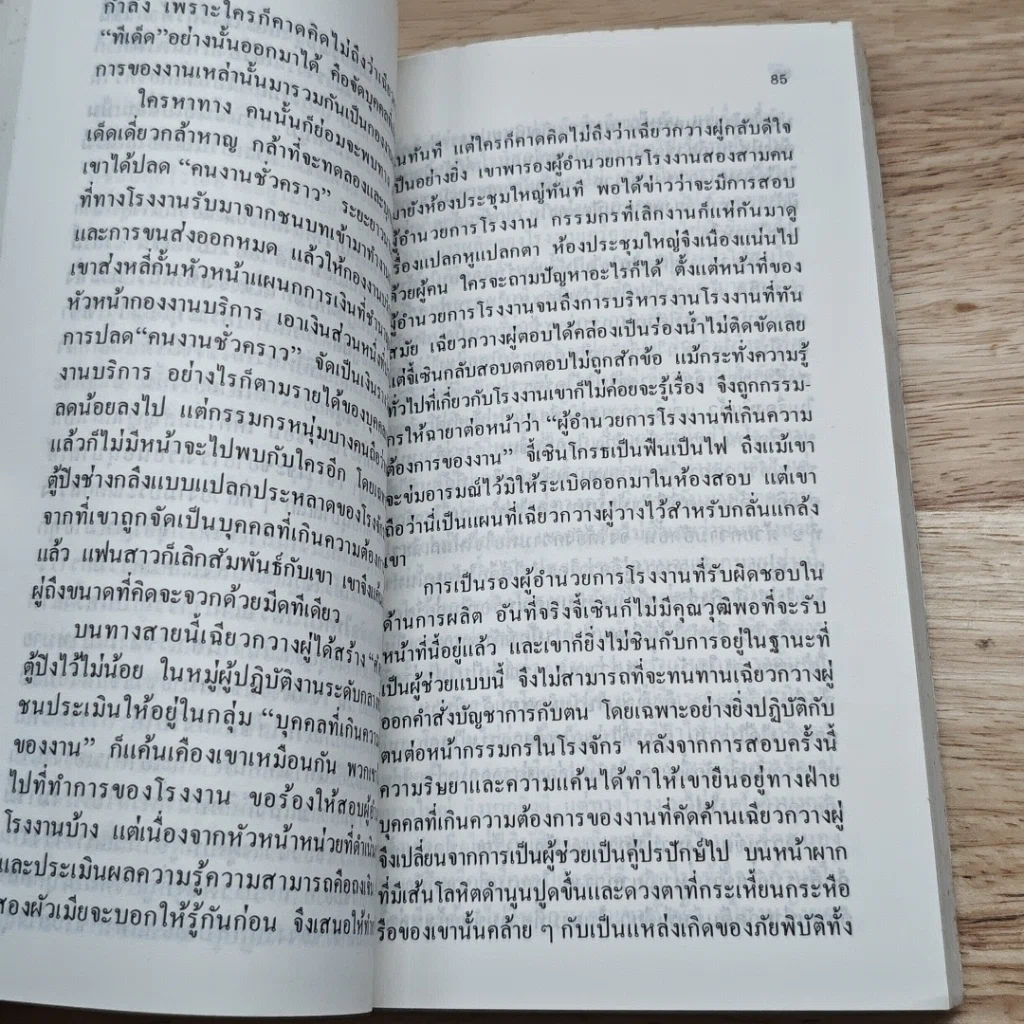 กำลัง เพราะใครก็คาดคิดไม่ถึงว่าเฉียว
“ทีเด็ด”อย่างนั้นออกมาได้ คือจัดบุคคล
การของงานเหล่านั้นมารวมกันเป็นกอง
ใครหาทาง คนนั้นก็ย่อมจะพบทาง
เด็ดเดี่ยวกล้าหาญ กล้าที่จะทดลองและ
เขาได้ปลด “คนงานชั่วคราว” ระยะยาว
ที่ทางโรงงานรับมาจากชนบทเข้ามาทำงาน
และการขนส่งออกหมด แล้วให้กองงาน
เขาส่งหลี่กั้นหัวหน้าแผนกการเงินที่ชำนาญ
หัวหน้ากองงานบริการ เอาเงินส่วนหนึ่ง
การปลด“คนงานชั่วคราว” จัดเป็นเงิน
งานบริการ อย่างไรก็ตามรายได้ของบุคคล
ลดน้อยลงไป แต่กรรมกรหนุ่มบางคนถือว่า
แล้วก็ไม่มีหน้าจะไปพบกับใครอีก โดย
ตู้ปิงช่างกลึงแบบแปลกประหลาดของโรงจักร
จากที่เขาถูกจัดเป็นบุคคลที่เกินความต้อง
แล้ว แฟนสาวก็เลิกสัมพันธ์กับเขา เขาจึง
ผู่ถึงขนาดที่คิดจะจวกด้วยมีดทีเดียว
บนทางสายนี้เฉียวกวางผู่ได้สร้าง
ตู้ปิงไว้ไม่น้อย ในหมู่ผู้ปฏิบัติงานระดับกลาง
ชนประเมินให้อยู่ในกลุ่ม “บุคคลที่เกินความ
ของงาน” ก็แค้นเคืองเขาเหมือนกัน พวกเขา
ไปที่ทำการของโรงงาน ขอร้องให้สอบผู้
โรงงานบ้าง แต่เนื่องจากหัวหน้าหน่วยที่ดำเนิน
และประเมินผลความรู้ความสามารถคือถงเจิน
สองผัวเมียจะบอกให้รู้กันก่อน จึงเสนอให้ทำ
85
นทันที แต่ใครก็คาดคิดไม่ถึงว่าเฉียวกวางผู่กลับดีใจ
เป็นอย่างยิ่ง เขาพารองผู้อำนวยการโรงงานสองสามคน
มายังห้องประชุมใหญ่ทันที พอได้ข่าวว่าจะมีการสอบ
ผู้อำนวยการโรงงาน กรรมกรที่เลิกงานก็แห่กันมาดู
เรื่องแปลกหูแปลกตา ห้องประชุมใหญ่จึงเนืองแน่นไป
ด้วยผู้คน ใครจะถามปัญหาอะไรก็ได้ ตั้งแต่หน้าที่ของ
ผู้อำนวยการโรงงานจนถึงการบริหารงานโรงงานที่ทัน
สมัย เฉียวกวางผู่ตอบได้คล่องเป็นร่องน้ำไม่ติดขัดเลย
แต่จี้เซินกลับสอบตกตอบไม่ถูกสักข้อ แม้กระทั่งความรู้
ทั่วไปที่เกี่ยวกับโรงงานเขาก็ไม่ค่อยจะรู้เรื่อง จึงถูกกรรม-
กรให้ฉายาต่อหน้าว่า “ผู้อำนวยการโรงงานที่เกินความ
ต้องการของงาน” จี้เซินโกรธเป็นฟืนเป็นไฟ ถึงแม้เขา
จะข่มอารมณ์ไว้มิให้ระเบิดออกมาในห้องสอบ แต่เขา
ถือว่านี่เป็นแผนที่เฉียวกวางผู่วางไว้สำหรับกลั่นแกล้ง
เขา
การเป็นรองผู้อำนวยการโรงงานที่รับผิดชอบใน
ด้านการผลิต อันที่จริงจี้เซินก็ไม่มีคุณวุฒิพอที่จะรับ
หน้าที่นี้อยู่แล้ว และเขาก็ยิ่งไม่ชินกับการอยู่ในฐานะที่
เป็นผู้ช่วยแบบนี้ จึงไม่สามารถที่จะทนทานเฉียวกวางผู่
ออกคำสั่งบัญชาการกับตน โดยเฉพาะอย่างยิ่งปฏิบัติกับ
ตนต่อหน้ากรรมกรในโรงจักร หลังจากการสอบครั้งนี้
ความริษยาและความแค้นได้ทำให้เขายืนอยู่ทางฝ่าย
บุคคลที่เกินความต้องการของงานที่คัดค้านเฉียวกวางผู่
จึงเปลี่ยนจากการเป็นผู้ช่วยเป็นคู่ปรปักษ์ไป บนหน้าผาก
ที่มีเส้นโลหิตดำนูนปูดขึ้นและดวงตาที่กระเหี้ยนกระหือ
รือของเขานั้นคล้าย ๆ กับเป็นแหล่งเกิดของภัยพิบัติทั้ง